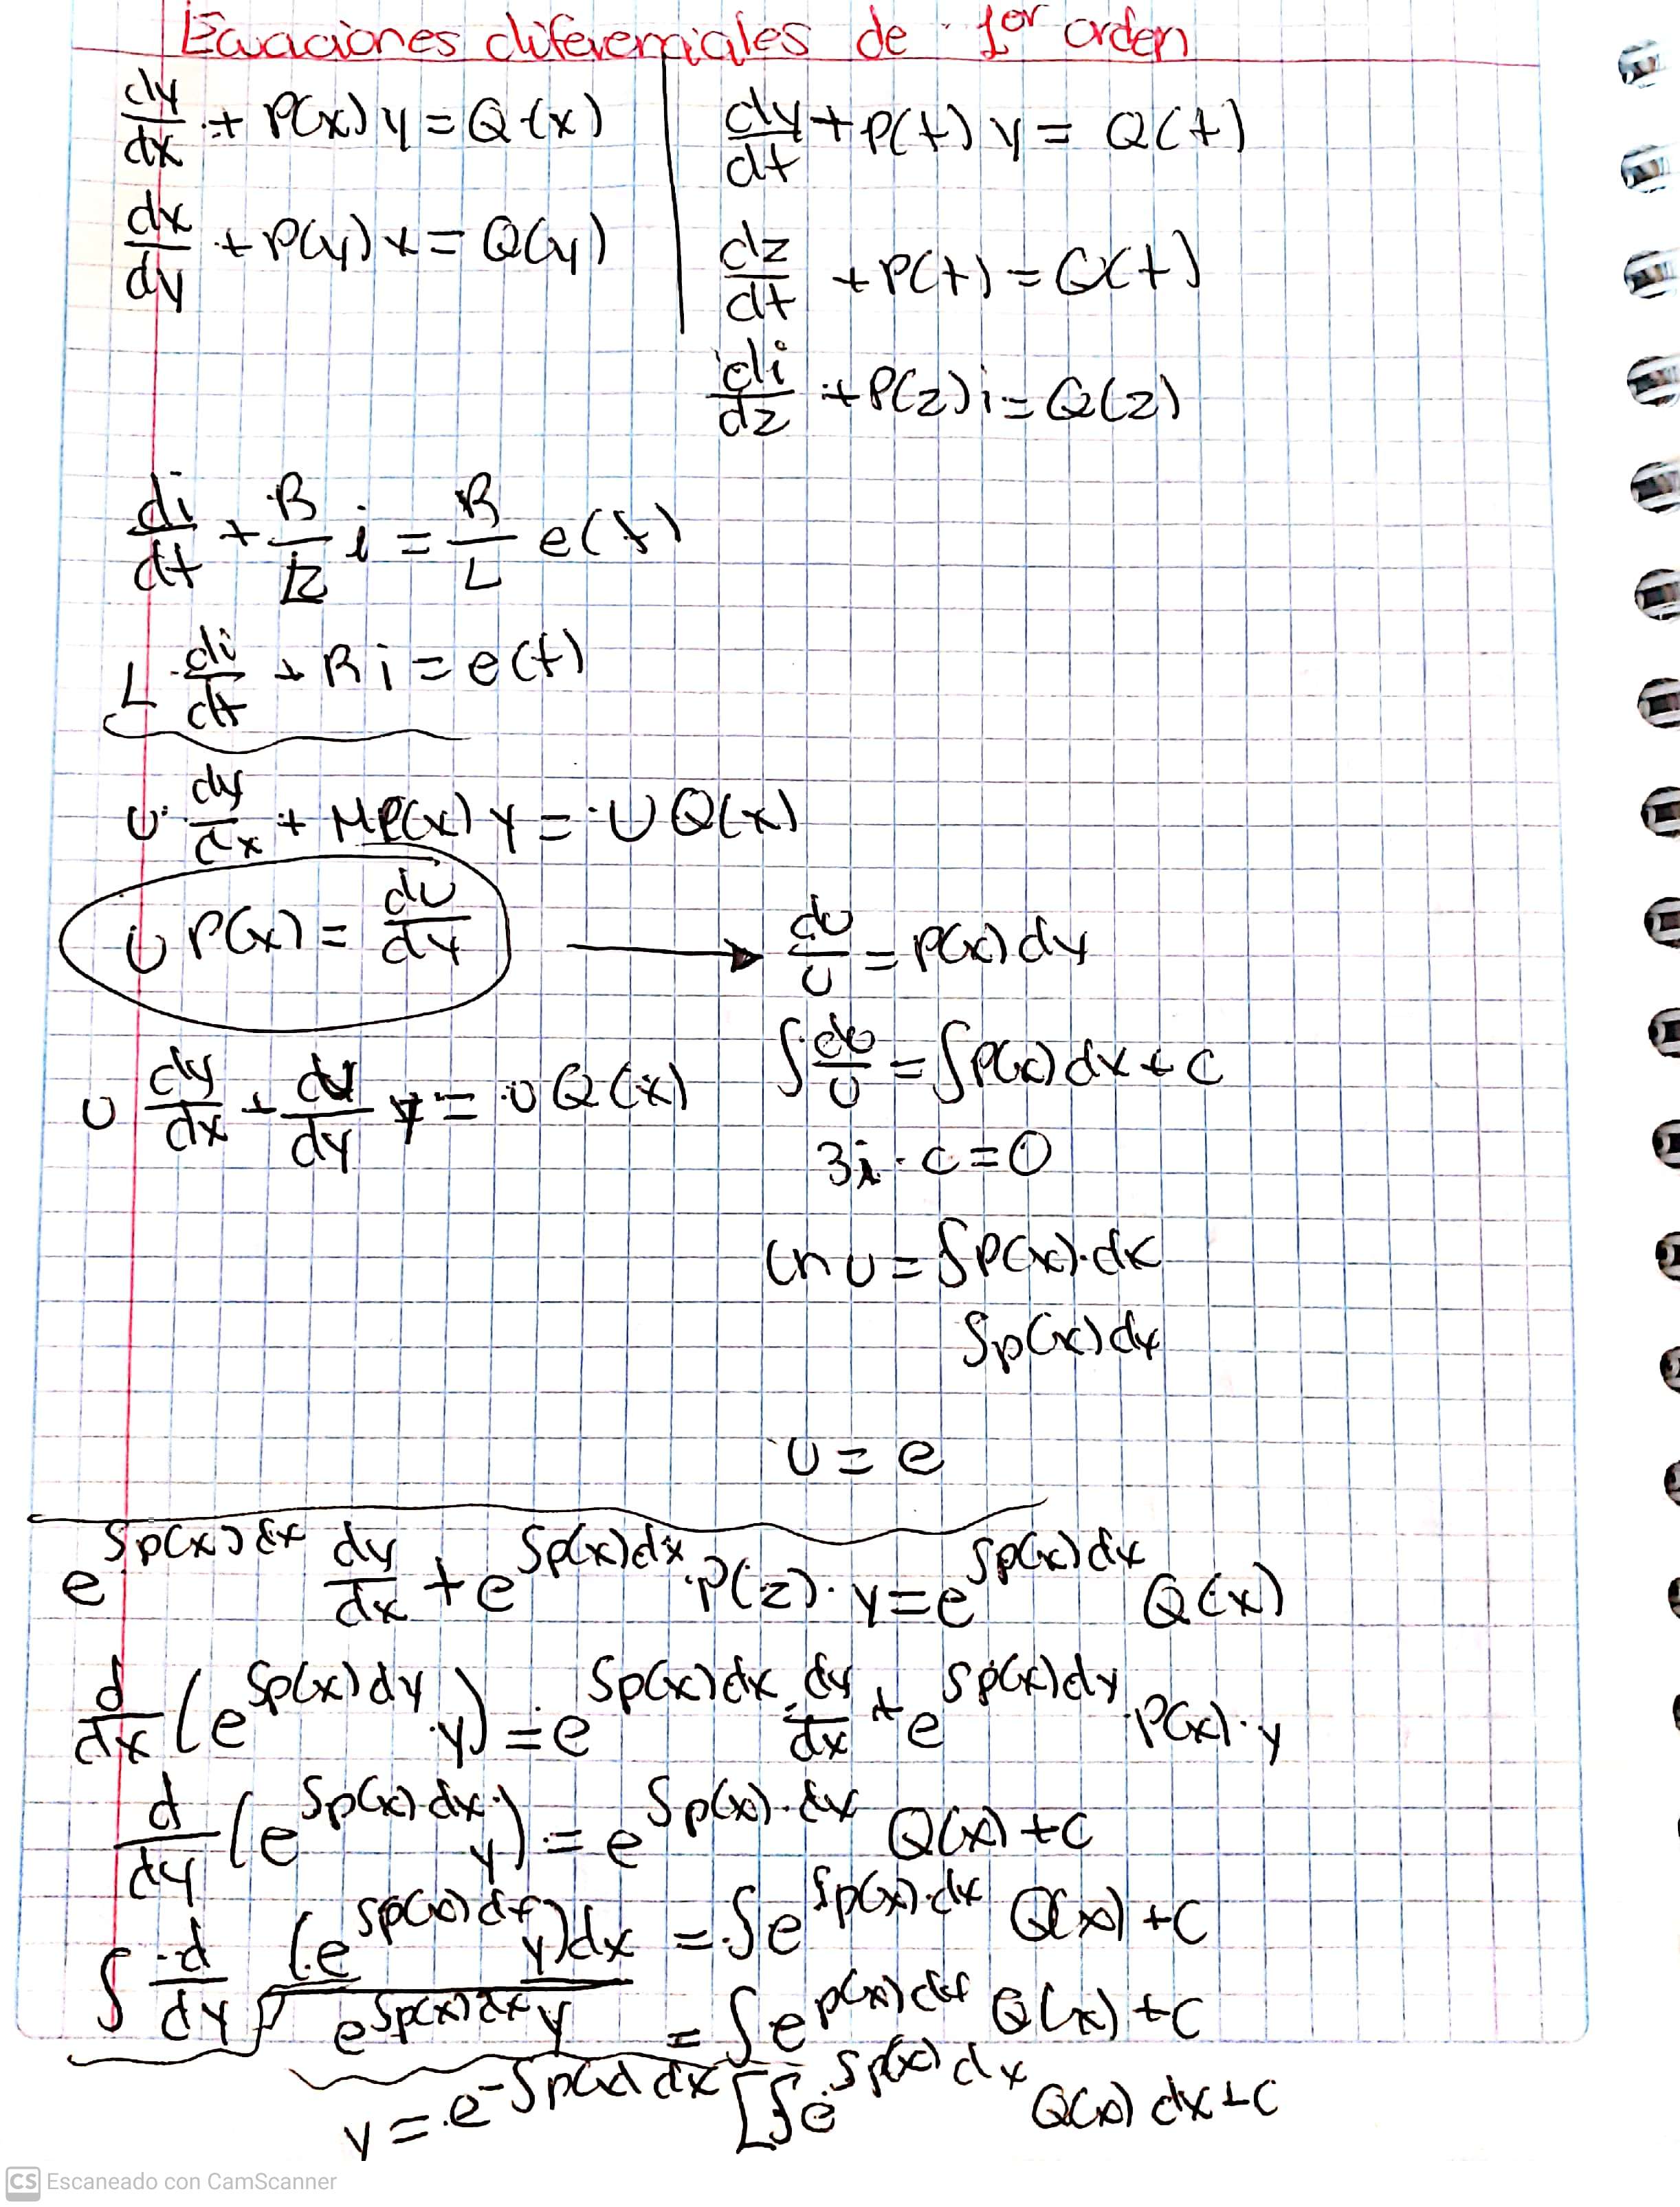 Ecuaciones diferenciales de 1or orden
dy/dx + P(x) y = Q(x)
dx/dy + P(y) x = Q(y)
dy/dt + P(t) y = Q(t)
dz/dt + P(t) = Q(t)
di/dz + P(z) i = Q(z)
di/dt + R/L i = R/L e(t)
L di/dt + R i = e(t)
U dy/dx + M P(x) y = U Q(x)
U P(x) = du/dx
U dy/dx + du/dy y = U Q(x)
du/U = P(x) dx
∫ du/U = ∫ P(x) dx + C
Si C = 0
Ln U = ∫ P(x) · dx
∫ p(x) dx
U = e
e^∫p(x)dx dy/dx + e^∫p(x)dx · P(z) · y = e^∫p(x)dx Q(x)
d/dx (e^∫p(x)dy · y) = e^∫p(x)dx · dy/dx + e^∫p(x)dy · P(x) · y
d/dy (e^∫p(x)·dx · y) = e^∫p(x)·dx Q(x) + C
∫ d/dy (e^∫p(x)dx y) dx = ∫ e^∫p(x)·dx Q(x) + C
e^∫p(x)dx y = ∫ e^p(x)dx Q(x) + C
y = e^-∫p(x)dx [∫ e^∫p(x)dx Q(x) dx + C
CS Escaneado con CamScanner